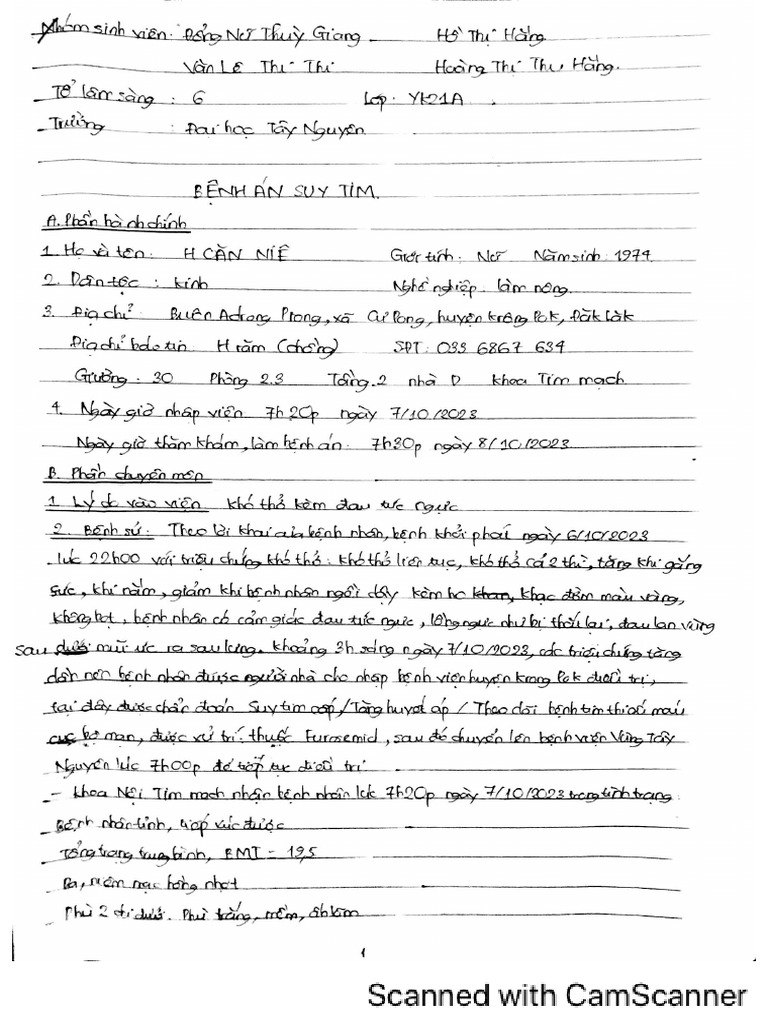 Nhóm sinh viên: Đồng Nữ Thuỳ Giang Hồ Thị Hằng
Văn Lê Thi Thi Hoàng Thị Thu Hằng.
Tổ lâm sàng : 6 Lớp: YK21A
Trường : Đại học Tây Nguyên
BỆNH ÁN SUY TIM.
A. Phần hành chính
1. Họ và tên: H CĂN NIÊ Giới tính: Nữ Năm sinh: 1974
2. Dân tộc : kinh Nghề nghiệp: làm nông.
3. Địa chỉ: Buôn Adrơng Prong, xã Cư Pơng, huyện Krông Pok, Đăk Lăk
Địa chỉ báo tin H răm (chồng) SĐT: 033 6867 634
Giường: 30 Phòng 2.3 Tầng 2 nhà D khoa Tim mạch
4. Ngày giờ nhập viện 7h20p ngày 7/10/2023
Ngày giờ thăm khám, làm bệnh án: 7h30p ngày 8/10/2023
B. Phần chuyên môn
1. Lý do vào viện khó thở kèm đau tức ngực
2. Bệnh sử: Theo lời khai của bệnh nhân, bệnh khởi phát ngày 6/10/2023
lúc 22h00 với triệu chứng khó thở: khó thở liên tục, khó thở cả 2 thì, tăng khi gắng
sức, khi nằm, giảm khi bệnh nhân ngồi dậy kèm ho khan, khạc đờm màu vàng,
không bọt, bệnh nhân có cảm giác đau tức ngực, lồng ngực như bị thắt lại, đau lan vùng
sau dưới mũi ức ra sau lưng. Khoảng 3h sáng ngày 7/10/2023, các triệu chứng tăng
dần nên bệnh nhân được người nhà cho nhập bệnh viện huyện Krong Pok điều trị,
tại đây được chẩn đoán Suy tim cấp / Tăng huyết áp / Theo dõi bệnh tim thiếu máu
cục bộ mạn, được xử trí: thuốc Furosemid, sau đó chuyển lên bệnh viện Vùng Tây
Nguyên lúc 7h00p để tiếp tục điều trị
- Khoa Nội Tim mạch nhận bệnh nhân lúc 7h20p ngày 7/10/2023 trong tình trạng
Bệnh nhân tỉnh, tiếp xúc được
Tổng trạng trung bình, BMI = 19,5
Da, niêm mạc hồng nhợt
Phù 2 chi dưới. Phù trắng, mềm, ấn lõm
1
Scanned with CamScanner